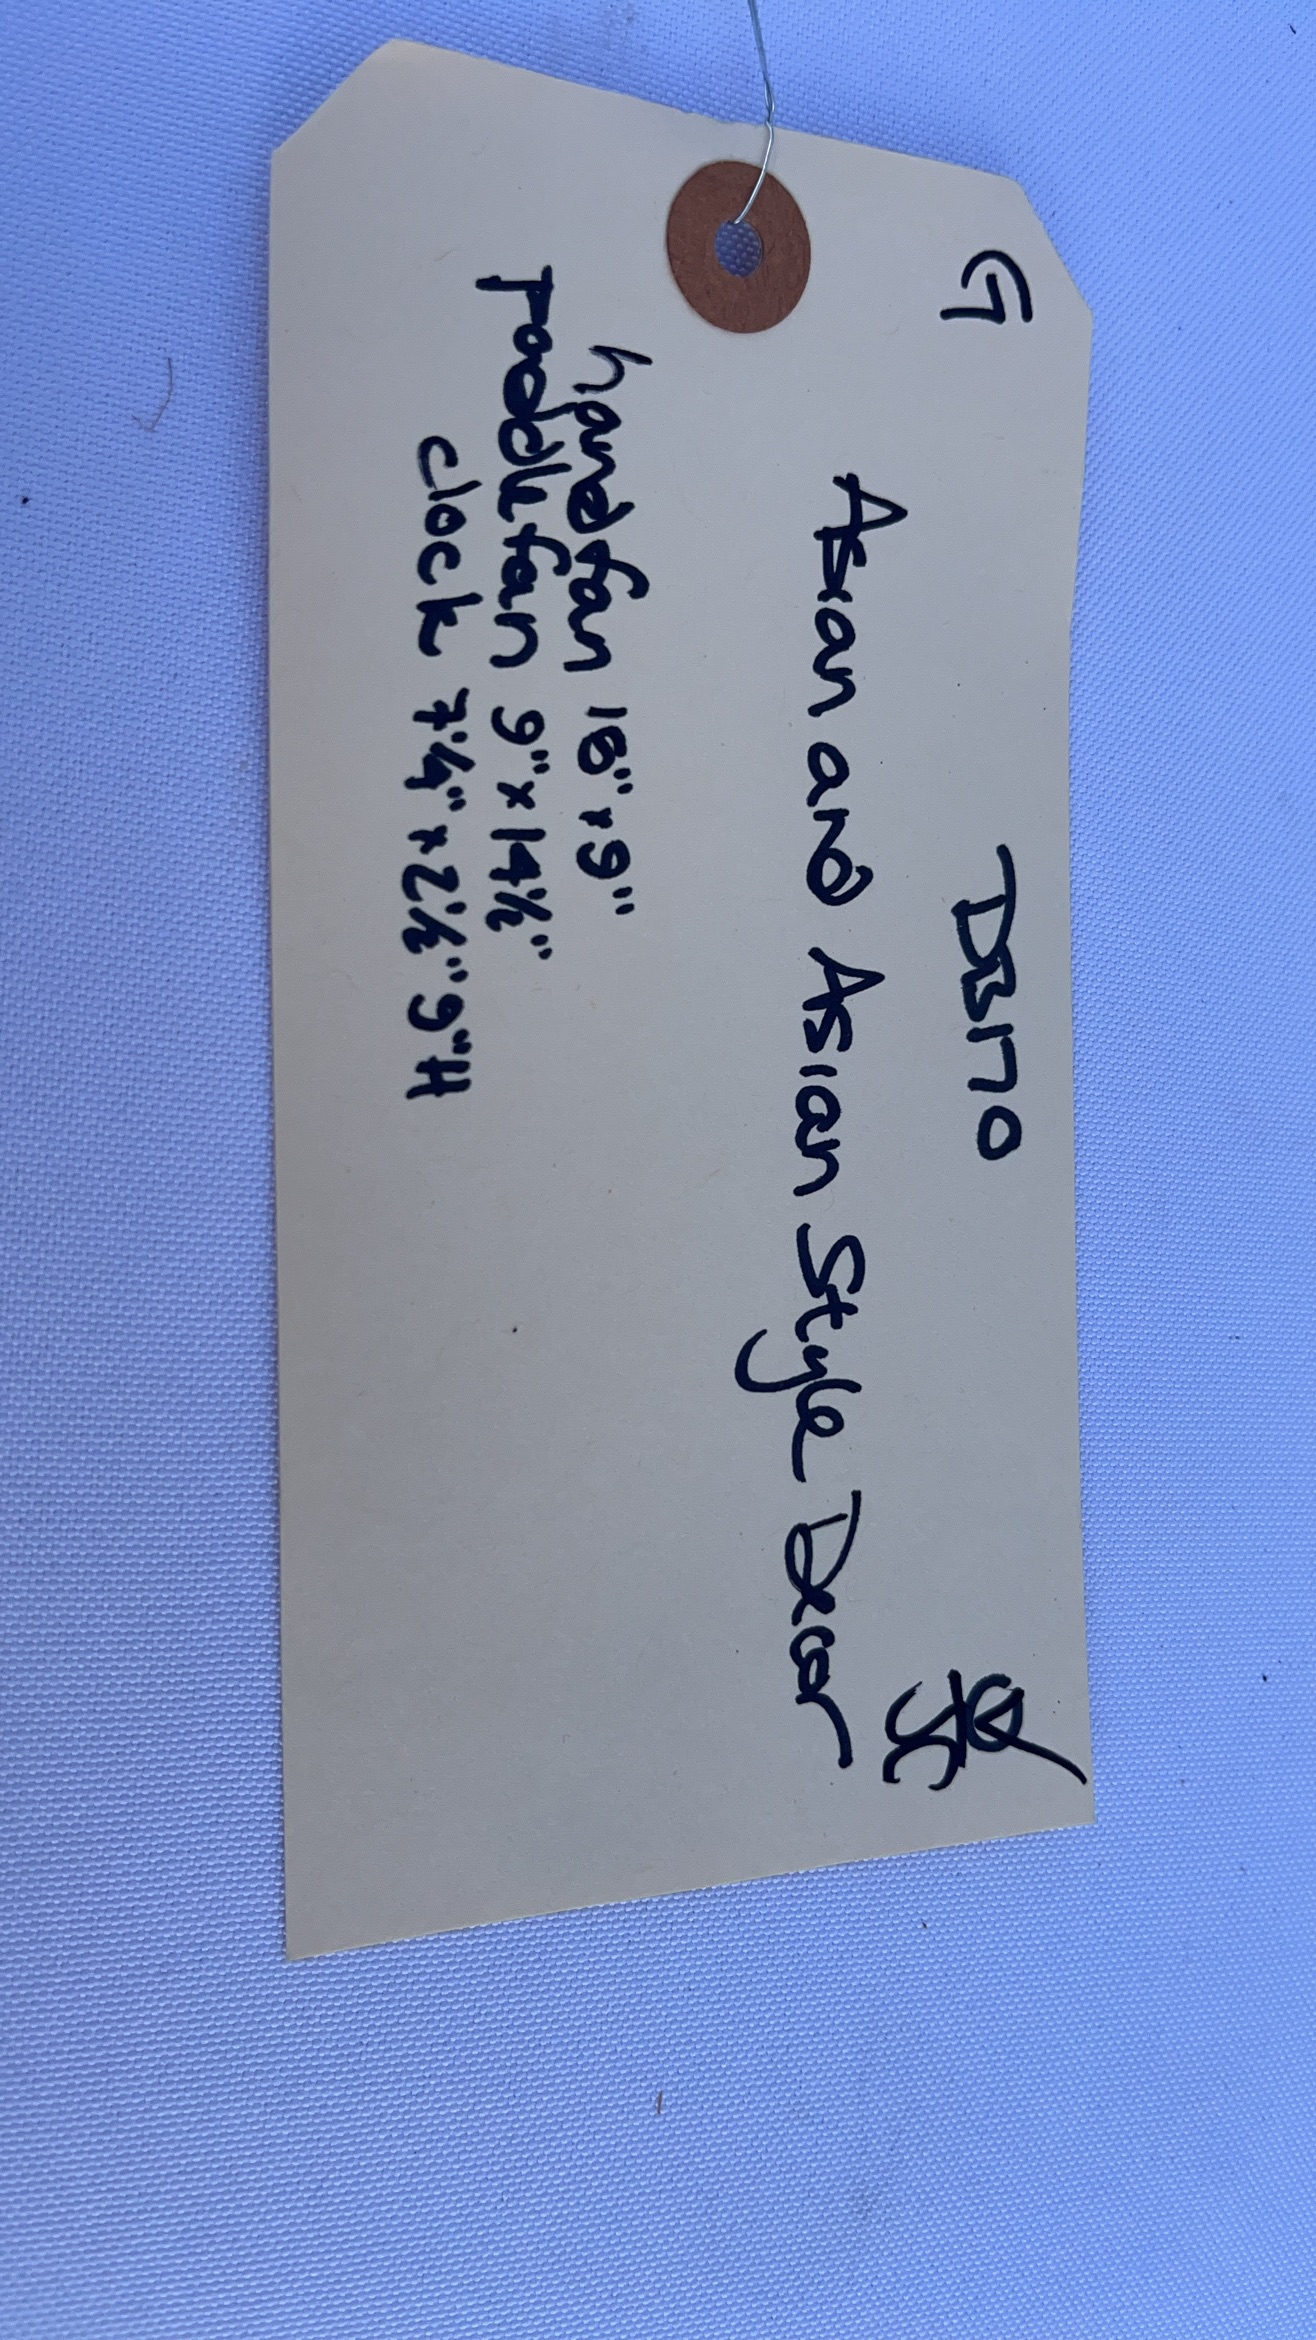 G DB170
Asian and Asian Style Decor
hand fan 18" x 9"
Paddle fan 9" x 14½"
clock 7¼" x 2½" 9"H